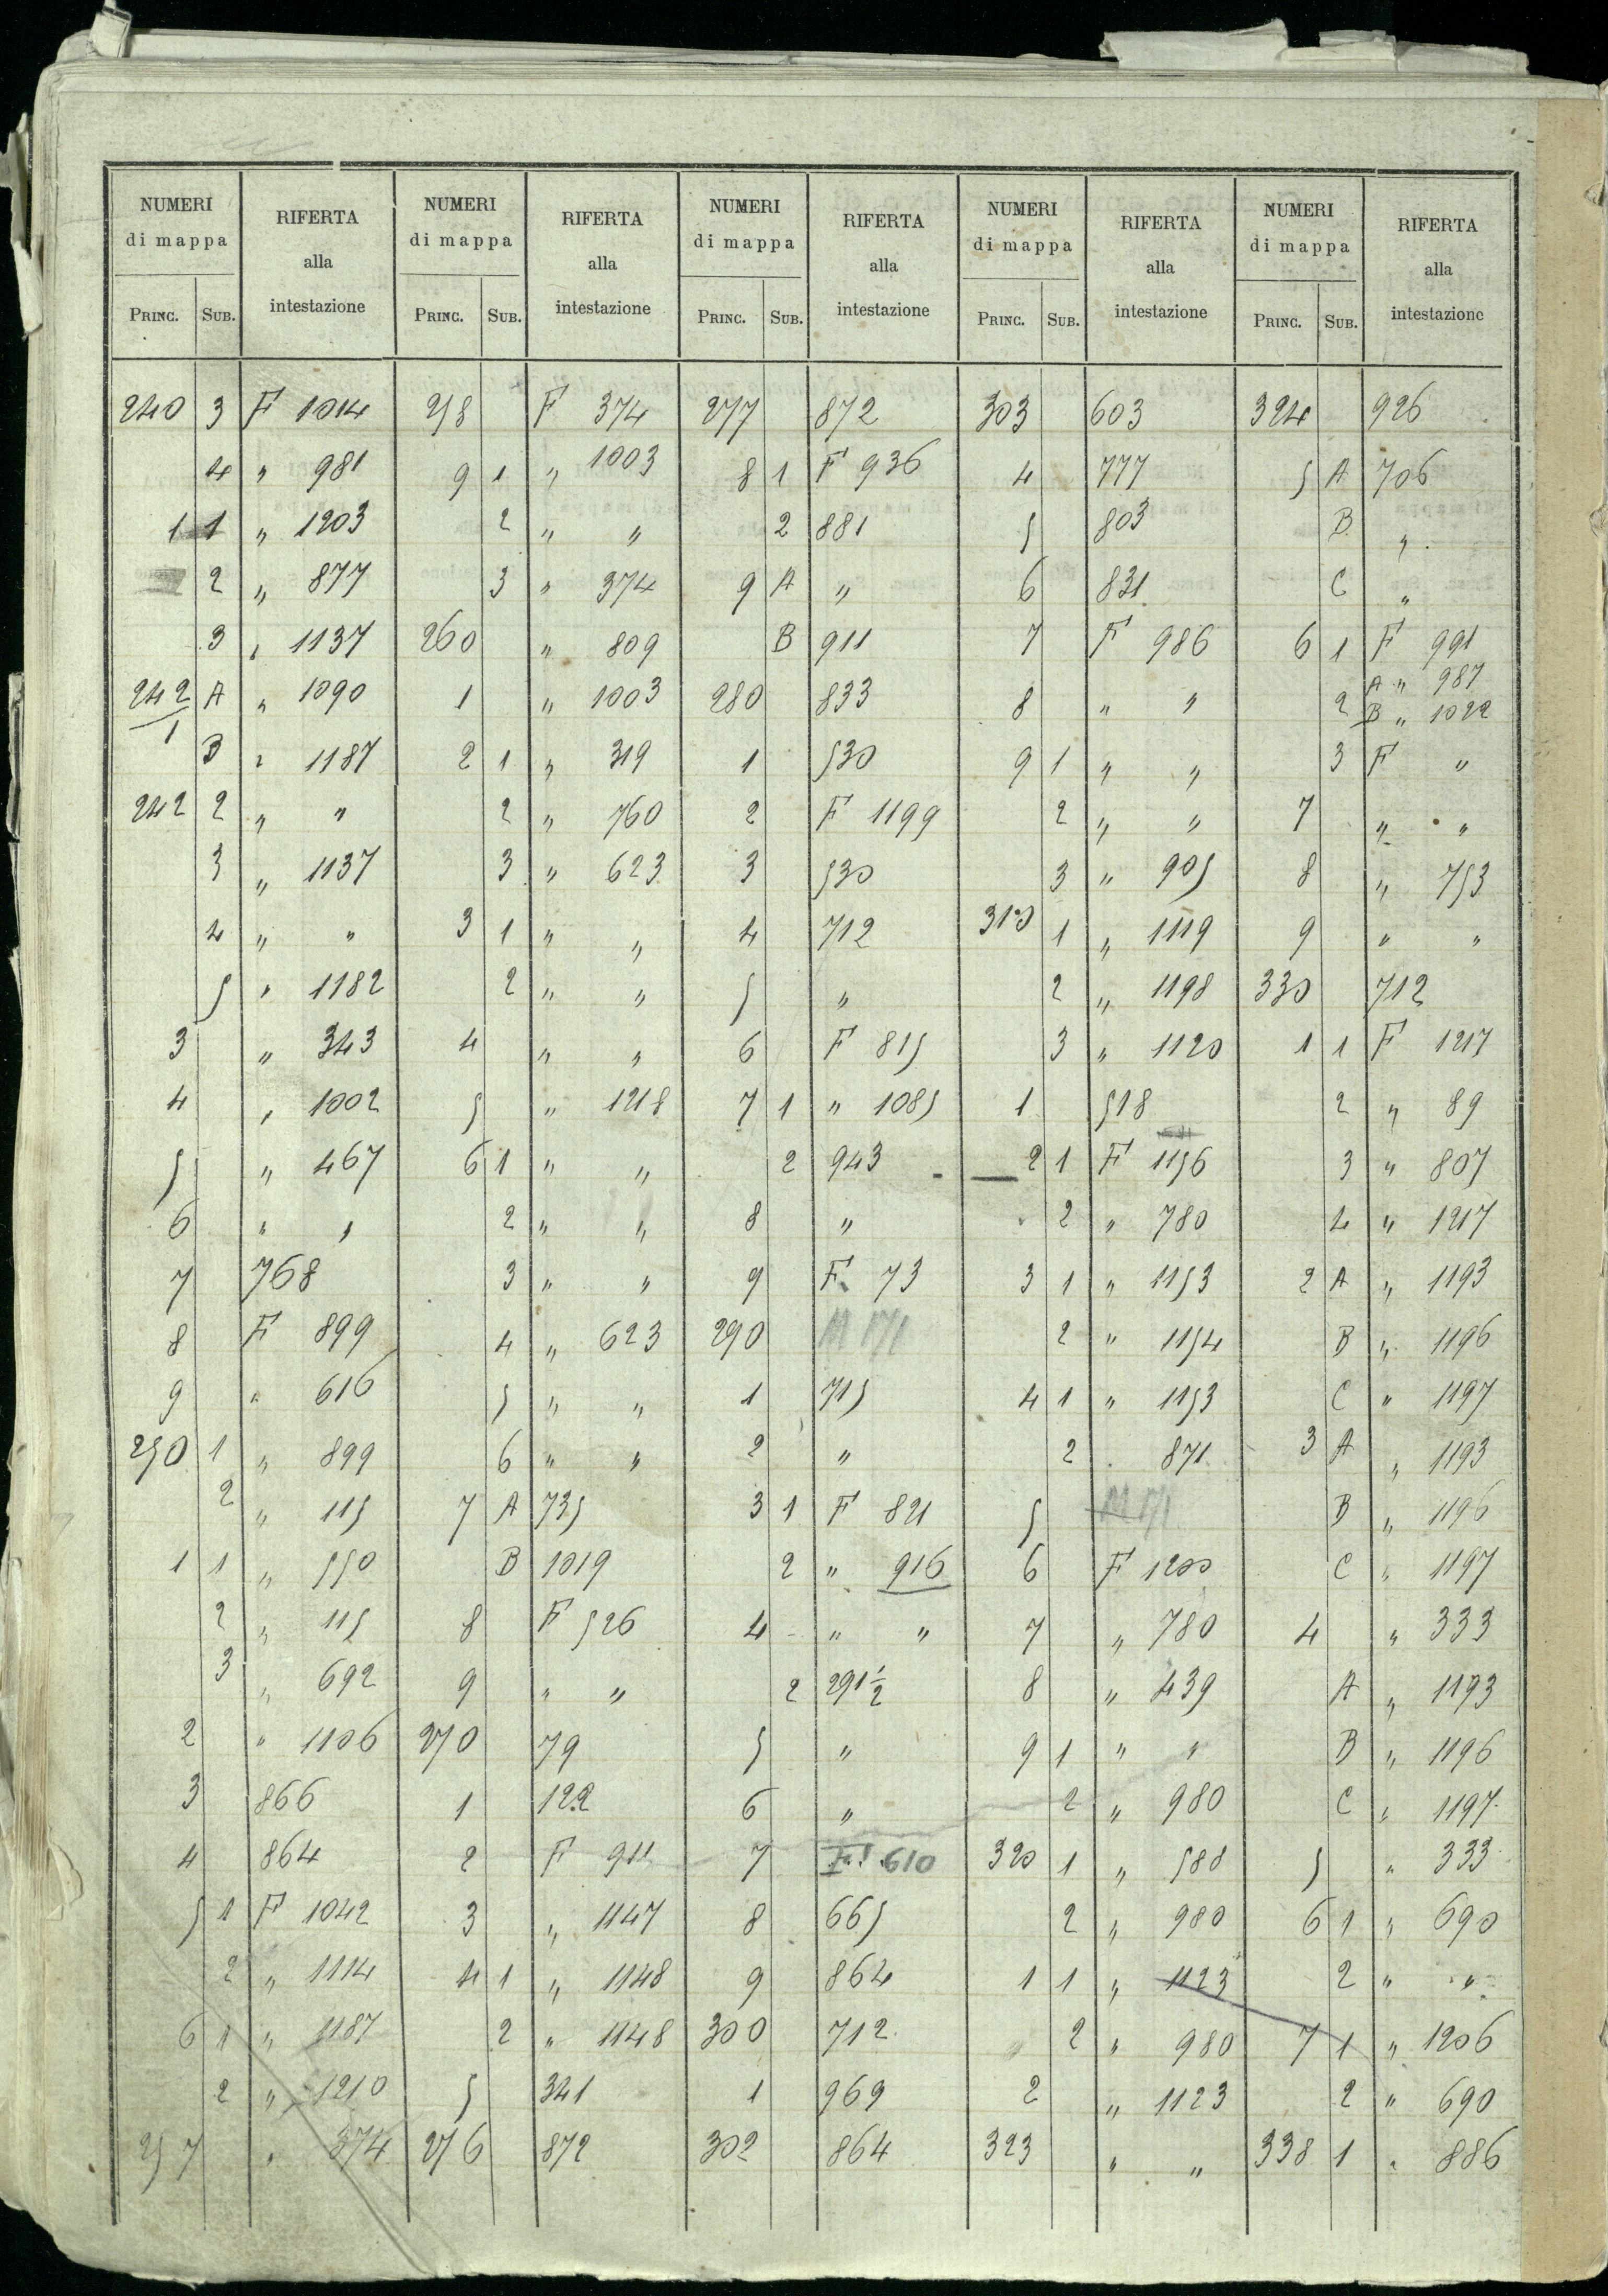 NUMERI di mappa | RIFERTA alla intestazione | NUMERI di mappa | RIFERTA alla intestazione | NUMERI di mappa | RIFERTA alla intestazione | NUMERI di mappa | RIFERTA alla intestazione | NUMERI di mappa | RIFERTA alla intestazione
PRINC. | SUB. | | PRINC. | SUB. | | PRINC. | SUB. | | PRINC. | SUB. | | PRINC. | SUB. |
240 | 3 | F 1014 | 258 | | F 374 | 277 | | 872 | 303 | | 603 | 324 | | 926
| 4 | " 981 | 9 | 1 | " 1003 | 8 | 1 | F 936 | 4 | | 777 | 5 | A | 706
1 | 1 | " 1203 | | 2 | " " | | 2 | 881 | 5 | | 803 | | B | "
| 2 | " 877 | | 3 | " 374 | 9 | A | " | 6 | | 831 | | C | "
| 3 | " 1137 | 260 | | " 809 | | B | 911 | 7 | | F 986 | 6 | 1 | F 991
242/1 | A | " 1090 | 1 | | " 1003 | 280 | | 833 | 8 | | " " | | 2 | A " 987 B " 1022
| B | " 1187 | 2 | 1 | " 319 | 1 | | 530 | 9 | 1 | " " | | 3 | F "
242 | 2 | " " | | 2 | " 760 | 2 | | F 1199 | | 2 | " " | 7 | | " "
| 3 | " 1137 | | 3 | " 623 | 3 | | 530 | | 3 | " 905 | 8 | | " 753
| 4 | " " | 3 | 1 | " " | 4 | | 712 | 310 | 1 | " 1119 | 9 | | " "
| 5 | " 1182 | | 2 | " " | 5 | | " | | 2 | " 1198 | 330 | | 712
3 | | " 343 | 4 | | " " | 6 | | F 815 | | 3 | " 1120 | 1 | 1 | F 1217
4 | | " 1002 | 5 | | " 1218 | 7 | 1 | " 1085 | 1 | | 518 | | 2 | " 89
5 | | " 467 | 6 | 1 | " " | | 2 | 943 | 2 | 1 | F 1156 | | 3 | " 807
6 | | " " | | 2 | " " | 8 | | " | | 2 | " 780 | | 4 | " 1217
7 | | 768 | | 3 | " " | 9 | | F. 73 | 3 | 1 | " 1153 | 2 | A | " 1193
8 | | F 899 | | 4 | " 623 | 290 | | M 171 | | 2 | " 1154 | | B | " 1196
9 | | " 616 | | 5 | " " | 1 | | 715 | 4 | 1 | " 1153 | | C | " 1197
250 | 1 | " 899 | | 6 | " " | 2 | | " | | 2 | 871 | 3 | A | " 1193
| 2 | " 115 | 7 | A | 735 | 3 | 1 | F 821 | 5 | | M 171 | | B | " 1196
1 | 1 | " 550 | | B | 1019 | | 2 | " 916 | 6 | | F 1200 | | C | " 1197
| 2 | " 115 | 8 | | F 526 | 4 | | " " | 7 | | " 780 | 4 | | " 333
| 3 | " 692 | 9 | | " " | | 2 | 291 1/2 | 8 | | " 439 | | A | " 1193
2 | | " 1106 | 270 | | 79 | 5 | | " | 9 | 1 | " " | | B | " 1196
3 | | 866 | 1 | | 122 | 6 | | " | | 2 | " 980 | | C | " 1197
4 | | 864 | 2 | | F 911 | 7 | | F. 610 | 320 | 1 | " 588 | 5 | | " 333
5 | 1 | F 1042 | 3 | | " 1147 | 8 | | 665 | | 2 | " 980 | 6 | 1 | " 690
| 2 | " 1114 | 4 | 1 | " 1148 | 9 | | 864 | 1 | 1 | " 1123 | | 2 | " "
6 | 1 | " 1187 | | 2 | " 1148 | 300 | | 712 | | 2 | " 980 | 7 | 1 | " 1206
| 2 | " 1210 | 5 | | 341 | 1 | | 969 | 2 | | " 1123 | | 2 | " 690
257 | | " 374 | 276 | | 872 | 302 | | 864 | 323 | | " " | 338 | 1 | " 886